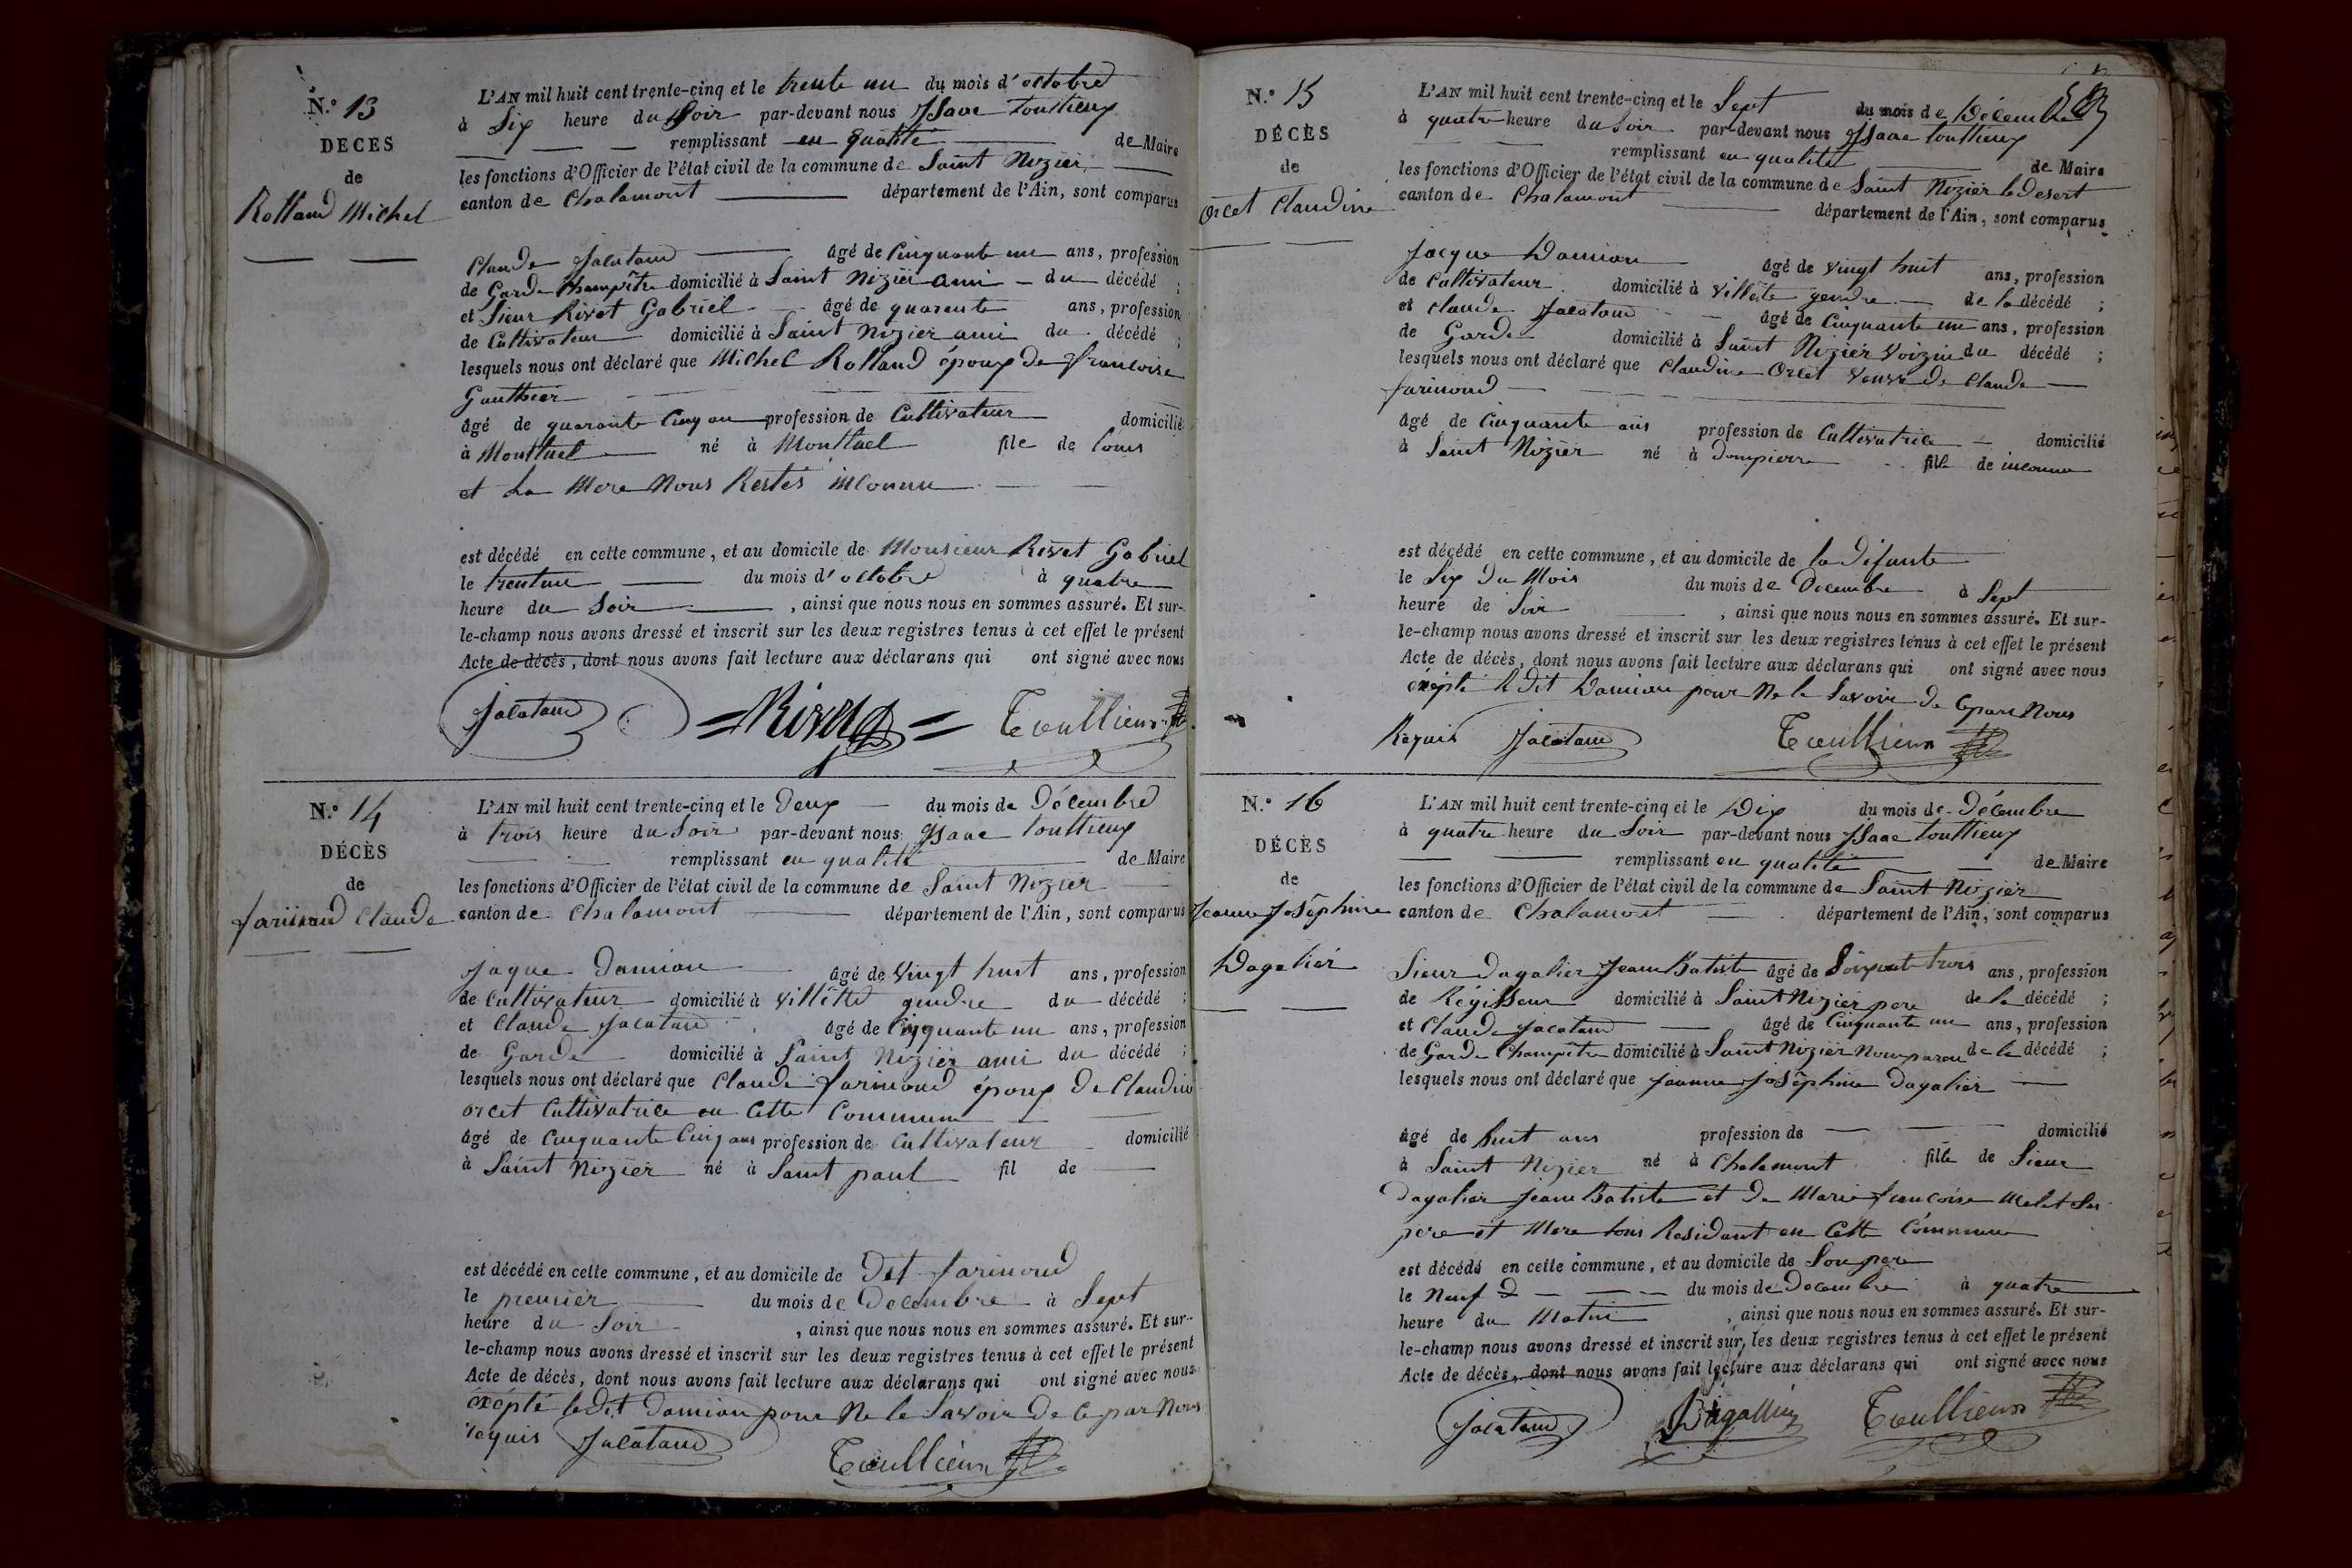 N.º 13
DÉCÈS
de
Rolland Michel
L'AN mil huit cent trente-cinq et le trente un du mois d'octobre
à Six heure du Soir par-devant nous Isaac Toullieux
remplissant en qualité de Maire
les fonctions d'Officier de l'état civil de la commune de Saint Nizier
canton de Chalamont département de l'Ain, sont comparus
Claude Jacataud âgé de Cinquante un ans, profession
de Garde Champêtre domicilié à Saint Nizier ami du décédé ;
et Sieur Rivet Gabriel âgé de quarente ans, profession
de Cultivateur domicilié à Saint Nizier ami du décédé ;
lesquels nous ont déclaré que Michel Rolland époux de francoise
Gauthier
âgé de quarante Cinq an profession de Cultivateur domicilié
à Montluel né à Montluel fils de Louis
et La Mere Nous Restés inconnu
est décédé en cette commune, et au domicile de Monsieur Rivet Gabriel
le trentun du mois d'octobre à quatre
heure du Soir , ainsi que nous nous en sommes assuré. Et sur-
le-champ nous avons dressé et inscrit sur les deux registres tenus à cet effet le présent
Acte de décès, dont nous avons fait lecture aux déclarans qui ont signé avec nous
Jacataud = Rivet = Toullieux
N.º 14
DÉCÈS
de
farinaud Claude
L'AN mil huit cent trente-cinq et le Deux du mois de Décembre
à trois heure du Soir par-devant nous Isaac Toullieux
remplissant en qualité de Maire
les fonctions d'Officier de l'état civil de la commune de Saint Nizier
canton de Chalamont département de l'Ain, sont comparus
Jaque Damian âgé de Vingt huit ans, profession
de Cultivateur domicilié à Villette gendre du décédé ;
et Claude Jacataud âgé de Cinquante un ans, profession
de Garde domicilié à Saint Nizier ami du décédé ;
lesquels nous ont déclaré que Claude farinoud époux De Claudine
orcet Cultivatrice en Cette Commune
âgé de Cinquante Cinq ans profession de Cultivateur domicilié
à Saint Nizier né à Saint paul fil de
est décédé en cette commune, et au domicile de Dit farinoud
le premier du mois de Decembre à Sept
heure du Soir , ainsi que nous nous en sommes assuré. Et sur-
le-champ nous avons dressé et inscrit sur les deux registres tenus à cet effet le présent
Acte de décès, dont nous avons fait lecture aux déclarans qui ont signé avec nous
éxépté le dit Damian pour Ne le Savoir De Ce par Nous
requis Jacataud Toullieux
N.º 15
DÉCÈS
de
Orcet Claudine
L'AN mil huit cent trente-cinq et le Sept du mois de Décembre
à quatre heure du Soir par-devant nous Isaac Toullieux
remplissant en qualité de Maire
les fonctions d'Officier de l'état civil de la commune de Saint Nizier le Desert
canton de Chalamont département de l'Ain, sont comparus
Jacque Damian âgé de vingt huit ans, profession
de Cultivateur domicilié à Villette gendre de la décédé ;
et Claude Jacataud âgé de Cinquante un ans, profession
de Garde domicilié à Saint Nizier Voizin du décédé ;
lesquels nous ont déclaré que Claudine Orcet Veuve de Claude
farinoud
âgé de Cinquante ans profession de Cultivatrice domicilié
à Saint Nizier né à Dompierre fille de inconnu
est décédé en cette commune, et au domicile de la Défunte
le Six Du Mois du mois de Decembre à Sept
heure de Soir , ainsi que nous nous en sommes assuré. Et sur-
le-champ nous avons dressé et inscrit sur les deux registres tenus à cet effet le présent
Acte de décès, dont nous avons fait lecture aux déclarans qui ont signé avec nous
éxépté le Dit Damian pour Ne le Savoir De Ce par Nous
Requis Jacataud Toullieux
N.º 16
DÉCÈS
de
Jeanne Joséphine
Dagalier
L'AN mil huit cent trente-cinq et le Dix du mois de Décembre
à quatre heure du Soir par-devant nous Isaac Toullieux
remplissant en qualité de Maire
les fonctions d'Officier de l'état civil de la commune de Saint Nizier
canton de Chalamont département de l'Ain, sont comparus
Sieur Dagalier Jean Batiste âgé de Soixante trois ans, profession
de Régisseur domicilié à Saint Nizier pere de la décédé ;
et Claude Jacataud âgé de Cinquante un ans, profession
de Garde Champêtre domicilié à Saint Nizier Nom paran de la décédé ;
lesquels nous ont déclaré que Jeanne Joséphine Dagalier
âgé de huit ans profession de domicilié
à Saint Nizier né à Chalamont fille de Sieur
Dagalier Jean Batiste et De Marie francoise Melet Ses
pere et Mere tous Residant en Cette Commune
est décédé en cette commune, et au domicile de Son pere
le Neuf du mois de Decembre à quatre
heure du Matin , ainsi que nous nous en sommes assuré. Et sur-
le-champ nous avons dressé et inscrit sur les deux registres tenus à cet effet le présent
Acte de décès, dont nous avons fait lecture aux déclarans qui ont signé avec nous
Jacataud Dagallier Toullieux